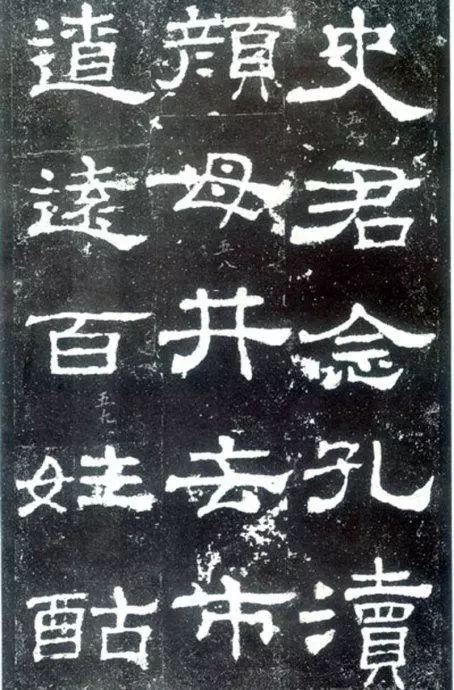 史君念孔瀆
五七
顏母井去市
五八
遼遠百姓酤
五九